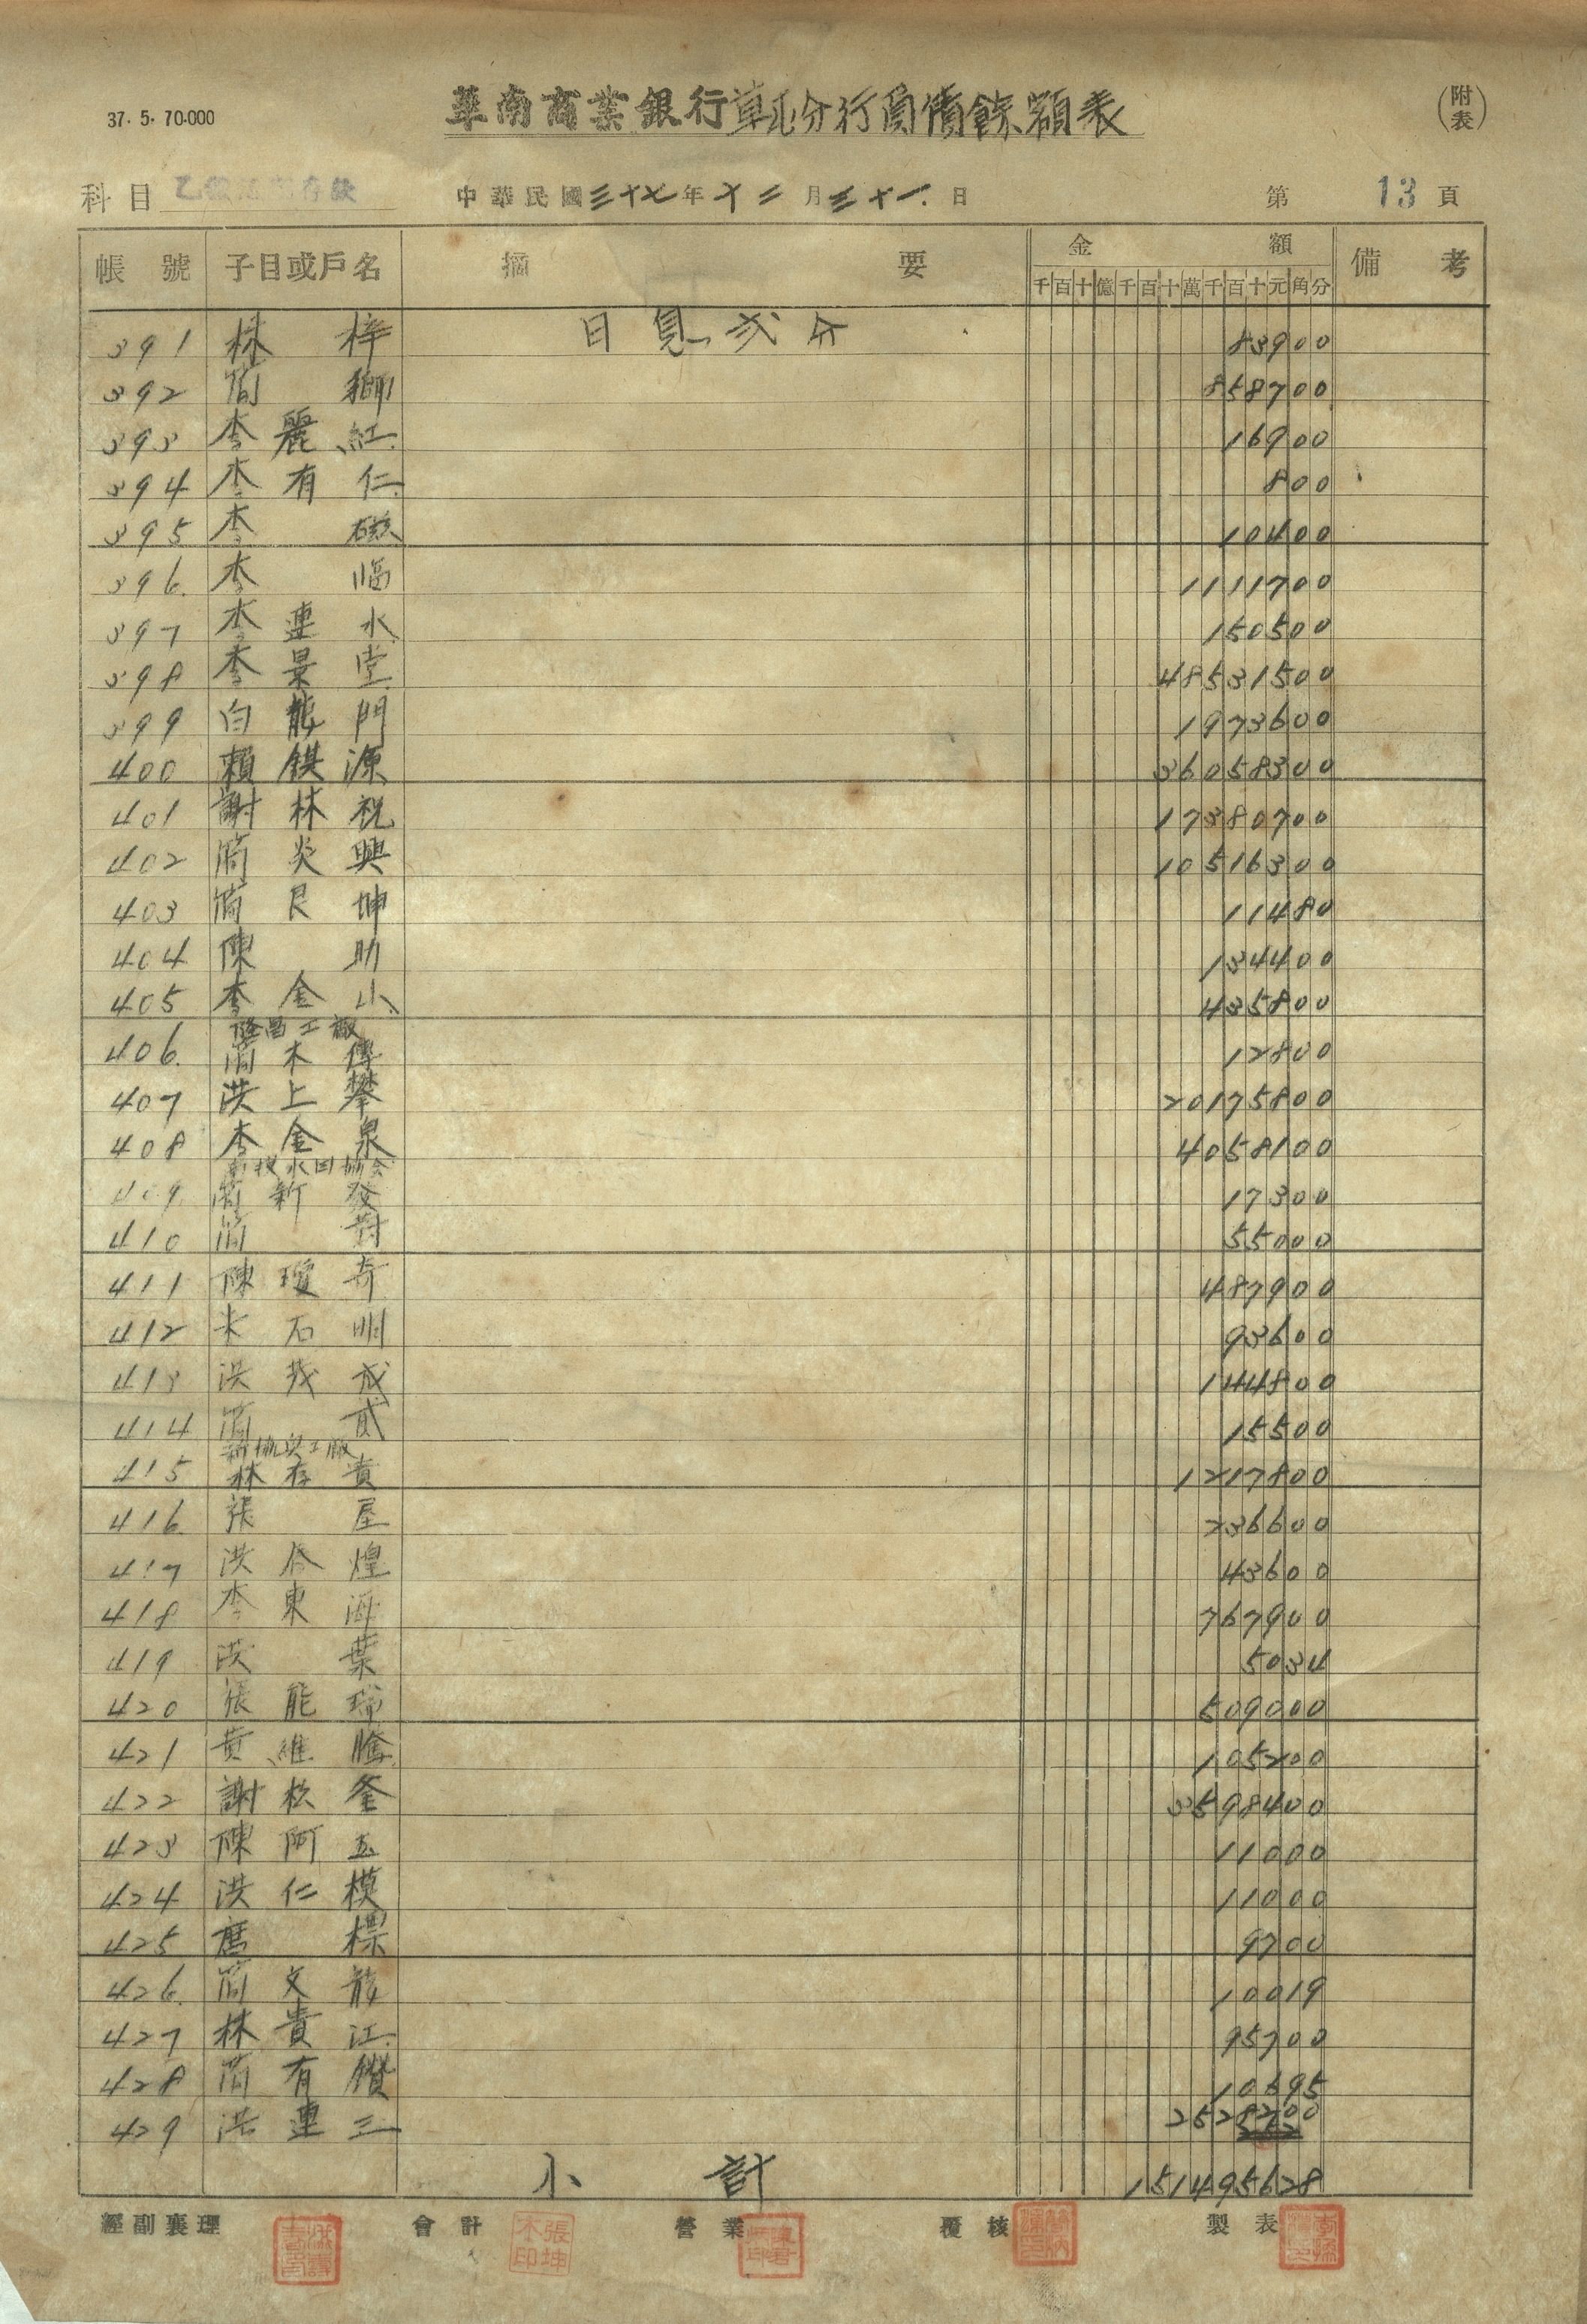 37. 5. 70.000
華南商業銀行草屯分行負債餘額表
(附表)
科目 乙種活期存款 中華民國三十七年十二月三十一日 第13頁
帳號 子目或戶名 摘要 金額 備考
千百十億千百十萬千百十元角分
391 林梓 日息弍分 83900
392 簡獅 858700
393 李麗紅 16900
394 李有仁 800
395 李磁 10400
396 李 1111700
397 李連水 150500
398 李景堂 48531500
399 白龍門 1973600
400 賴錤源 36058300
401 謝林祝 17380700
402 簡炎興 10516300
403 簡艮坤 11480
404 陳助 134400
405 李金山 435800
隆昌工廠
406 簡木 12800
407 洪上攀 20175800
408 李金泉 4058100
409 簡新發 17300
410 簡對 55000
411 陳瓊奇 487900
412 石 93600
413 洪茂成 144800
414 簡貳 15500
新協興工廠
415 林存貴 1217800
416 張屋 236600
417 洪煌 43600
418 李東海 767900
419 洪葉 5034
420 張能瑞 509000
421 黃維騰 105200
422 謝松奎 3598400
423 陳阿五 11000
424 洪仁模 11000
425 標 9700
426 簡文龍 10019
427 林貴江 95700
428 簡有鑽 10695
429 洪連三 2528200
小計 151495628
經副襄理 會計 營業 覆核 製表
張坤木印